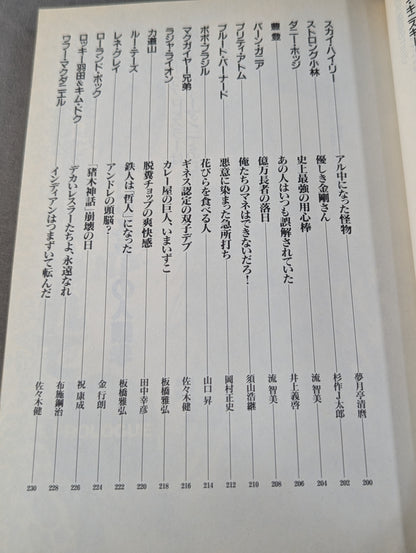 スカイ・ハイ・リー アル中になった怪物 夢月亭清麿 200
ストロング小林 優しき金剛さん 杉作J太郎 202
ダニー・ホッジ 史上最強の用心棒 流 智美 204
豊登 あの人はいつも誤解されていた 井上義啓 206
バーン・ガニア 億万長者の落日 流 智美 208
プリティ・アトム 俺たちのマネはできないだろ! 須山浩継 210
ブルート・バーナード 悪意に染まった急所打ち 岡村正史 212
ボボ・ブラジル 花びらを食べる人 山口 昇 214
マクガイヤー兄弟 ギネス認定の双子デブ 佐々木健 216
ラジャ・ライオン カレー屋の巨人、いまいずこ 板橋雅弘 218
力道山 脱糞チョップの爽快感 田中幸彦 220
ルー・テーズ 鉄人は「哲人」になった 板橋雅弘 222
レネ・グレイ アンドレの頭脳? 金 行朗 224
ローランド・ボック 「猪木神話」崩壊の日 祝 康成 226
ロッキー羽田&キム・ドク デカいレスラーたちよ、永遠なれ 布施鋼治 228
ワフー・マクダニエル インディアンはつまずいて転んだ 佐々木健 230